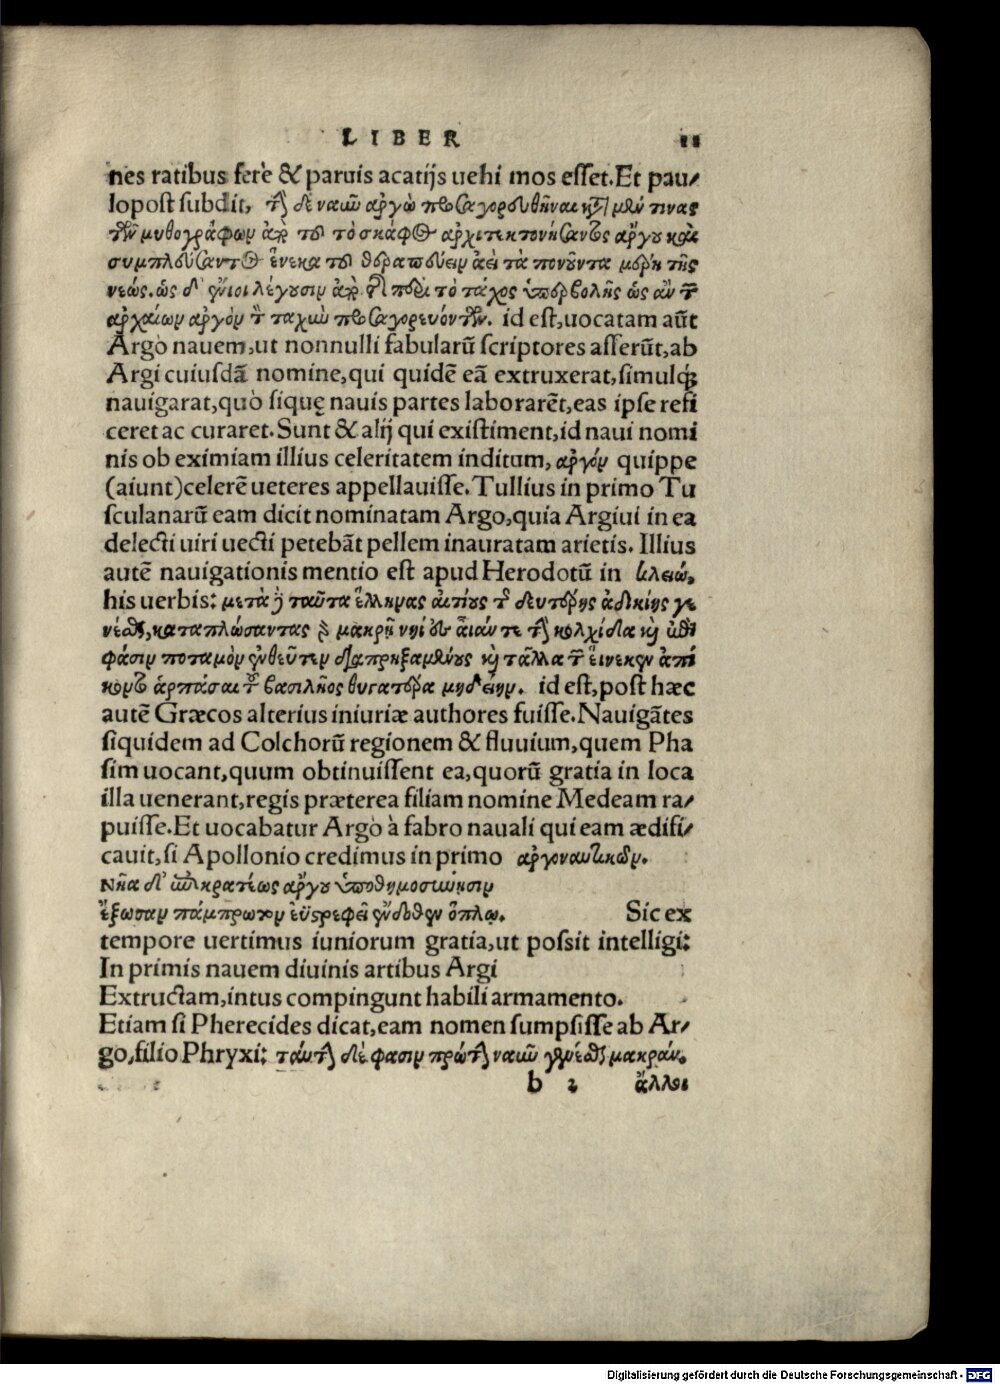 LIBER 11
nes ratibus ferè & paruis acatijs uehi mos esset. Et pau/
lopost subdit, τὴν δὲ ναῦν ἀργὼ προσαγορευθῆναι κατὰ μέν τινας
τῶν μυθογράφων ἀπὸ τοῦ τὸ σκάφος ἀρχιτεκτονήσαντος ἄργου καὶ
συμπλεύσαντος ἕνεκα τοῦ θεραπεύειν ἀεὶ τὰ πονοῦντα μέρη τῆς
νεώς. ὡς δ' ἔνιοι λέγουσιν ἀπὸ τῆς περὶ τὸ τάχος ὑπερβολῆς ὡς ἂν τῶν
ἀρχαίων ἀργὸν τὸ ταχὺ προσαγορευόντων. id est, uocatam aūt
Argò nauem, ut nonnulli fabularū scriptores asserūt, ab
Argi cuiusdā nomine, qui quidē eā extruxerat, simulq;
nauigarat, quò siquę nauis partes laborarēt, eas ipse refi
ceret ac curaret. Sunt & alij qui existiment, id naui nomi
nis ob eximiam illius celeritatem inditum, ἀργόν quippe
(aiunt) celerē ueteres appellauisse. Tullius in primo Tu
sculanarū eam dicit nominatam Argo, quia Argiui in ea
delecti uiri uecti petebāt pellem inauratam arietis. Illius
autē nauigationis mentio est apud Herodotū in κλειώ,
his uerbis: μετὰ δὲ ταῦτα ἕλληνας αἰτίους τῆς δευτέρης ἀδικίης γε
νέσθαι, καταπλώσαντας γὰρ μακρῇ νηὶ ἐς αἶάν τε τὴν κολχίδα καὶ ἐπὶ
φάσιν ποταμὸν ἐνθεῦτεν διαπρηξαμένους καὶ τἄλλα τῶν εἵνεκεν ἀπί
κοντο ἁρπάσαι τοῦ βασιλῆος θυγατέρα μηδείην. id est, post hæc
autē Græcos alterius iniuriæ authores fuisse. Nauigātes
siquidem ad Colchorū regionem & fluuium, quem Pha
sim uocant, quum obtinuissent ea, quorū gratia in loca
illa uenerant, regis præterea filiam nomine Medeam ra/
puisse. Et uocabatur Argò à fabro nauali qui eam ædifi/
cauit, si Apollonio credimus in primo ἀργοναυτικῶν.
Νῆα δ' ἐπικρατέως ἄργου ὑποθημοσύνησιν
ἔζωσαν πάμπρωτον ἐϋστρεφεῖ ἔνδοθεν ὅπλῳ. Sic ex
tempore uertimus iuniorum gratia, ut possit intelligi:
In primis nauem diuinis artibus Argi
Extructam, intus compingunt habili armamento.
Etiam si Pherecides dicat, eam nomen sumpsisse ab Ar/
go, filio Phryxi: ταύτην δέ φασιν πρώτην ναῦν γενέσθαι μακράν.
b 2 ἄλλοι
Digitalisierung gefördert durch die Deutsche Forschungsgemeinschaft - DFG